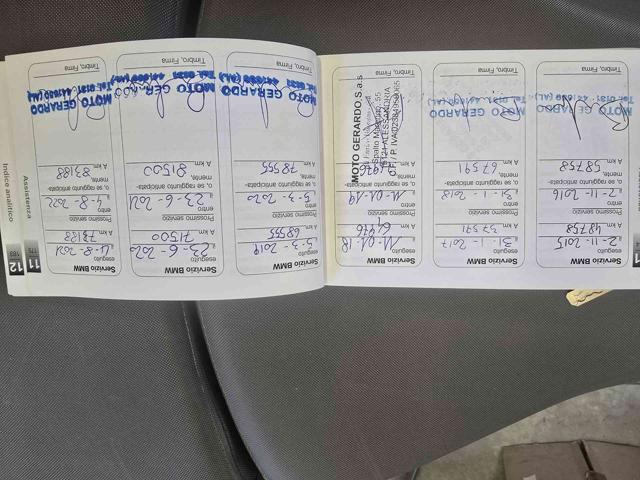 Servizio BMW
eseguito
il 2-11-2015
a km 48758
Prossimo servizio
entro
il 2-11-2016
o, se raggiunto anticipata-
mente,
a km 58758
MOTO GERARDO
Timbro, Firma
Servizio BMW
eseguito
il 31-1-2017
a km 57591
Prossimo servizio
entro
il 31-1-2018
o, se raggiunto anticipata-
mente,
a km 67591
MOTO GERARDO
Timbro, Firma
Servizio BMW
eseguito
il 11-01-18
a km
Prossimo servizio
entro
il 11-01-19
o, se raggiunto anticipata-
mente,
a km
MOTO GERARDO S.a.s
ALESSANDRIA
Timbro, Firma
Servizio BMW
eseguito
il 5-3-2019
a km 68555
Prossimo servizio
entro
il 5-3-2020
o, se raggiunto anticipata-
mente,
a km 78555
MOTO GERARDO
Timbro, Firma
Servizio BMW
eseguito
il 23-6-2020
a km 71500
Prossimo servizio
entro
il 23-6-2021
o, se raggiunto anticipata-
mente,
a km 81500
MOTO GERARDO
Timbro, Firma
Servizio BMW
eseguito
il 4-8-2021
a km 73188
Prossimo servizio
entro
il 4-8-2022
o, se raggiunto anticipata-
mente,
a km 83188
MOTO GERARDO
Timbro, Firma
11
Assistenza
12
Indice analitico